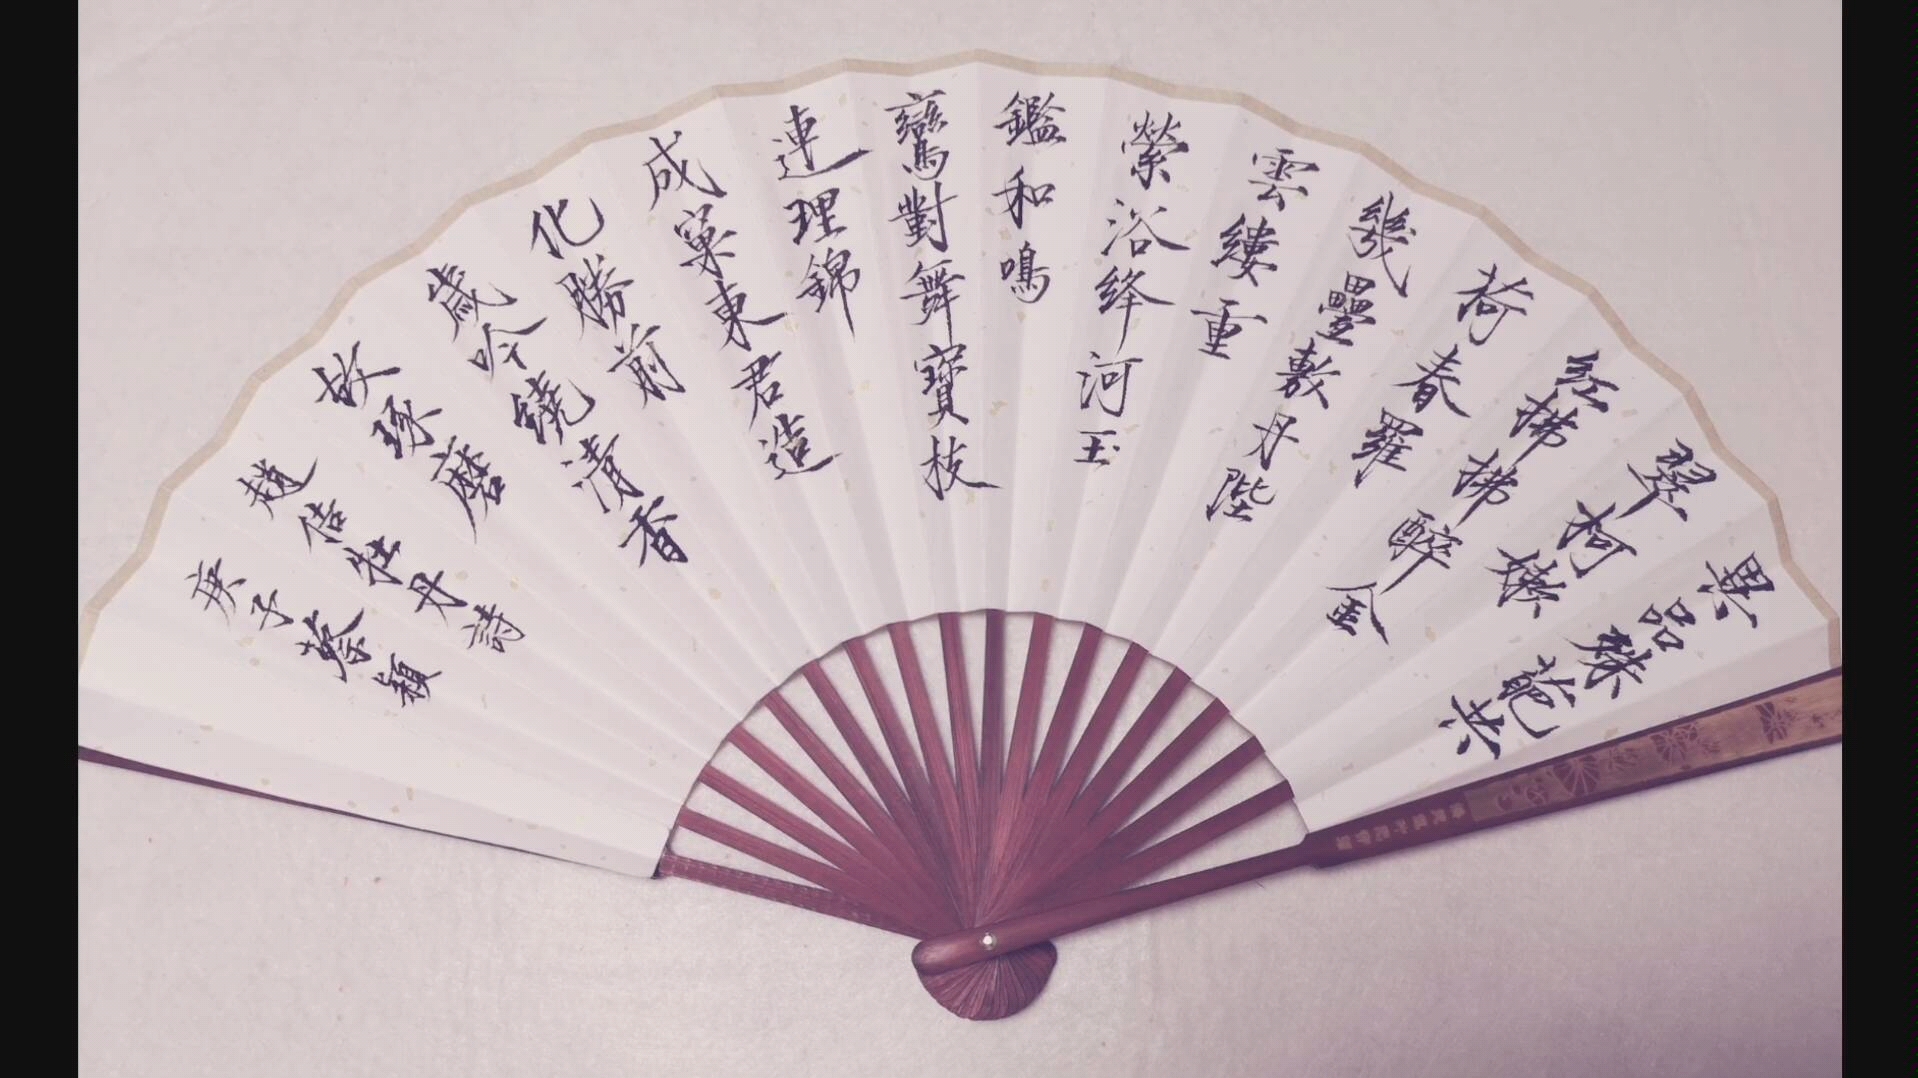 異品殊葩共
翠柯嫩
紅拂拂醉金
荷春羅
幾疊敷丹陛
雲縷重
縈浴絳河玉
鑑和鳴
鸞對舞寶枝
連理錦
成窠東君造
化勝前
歲吟繞清香
故琢磨
趙佶牡丹詩
庚子蔡穎